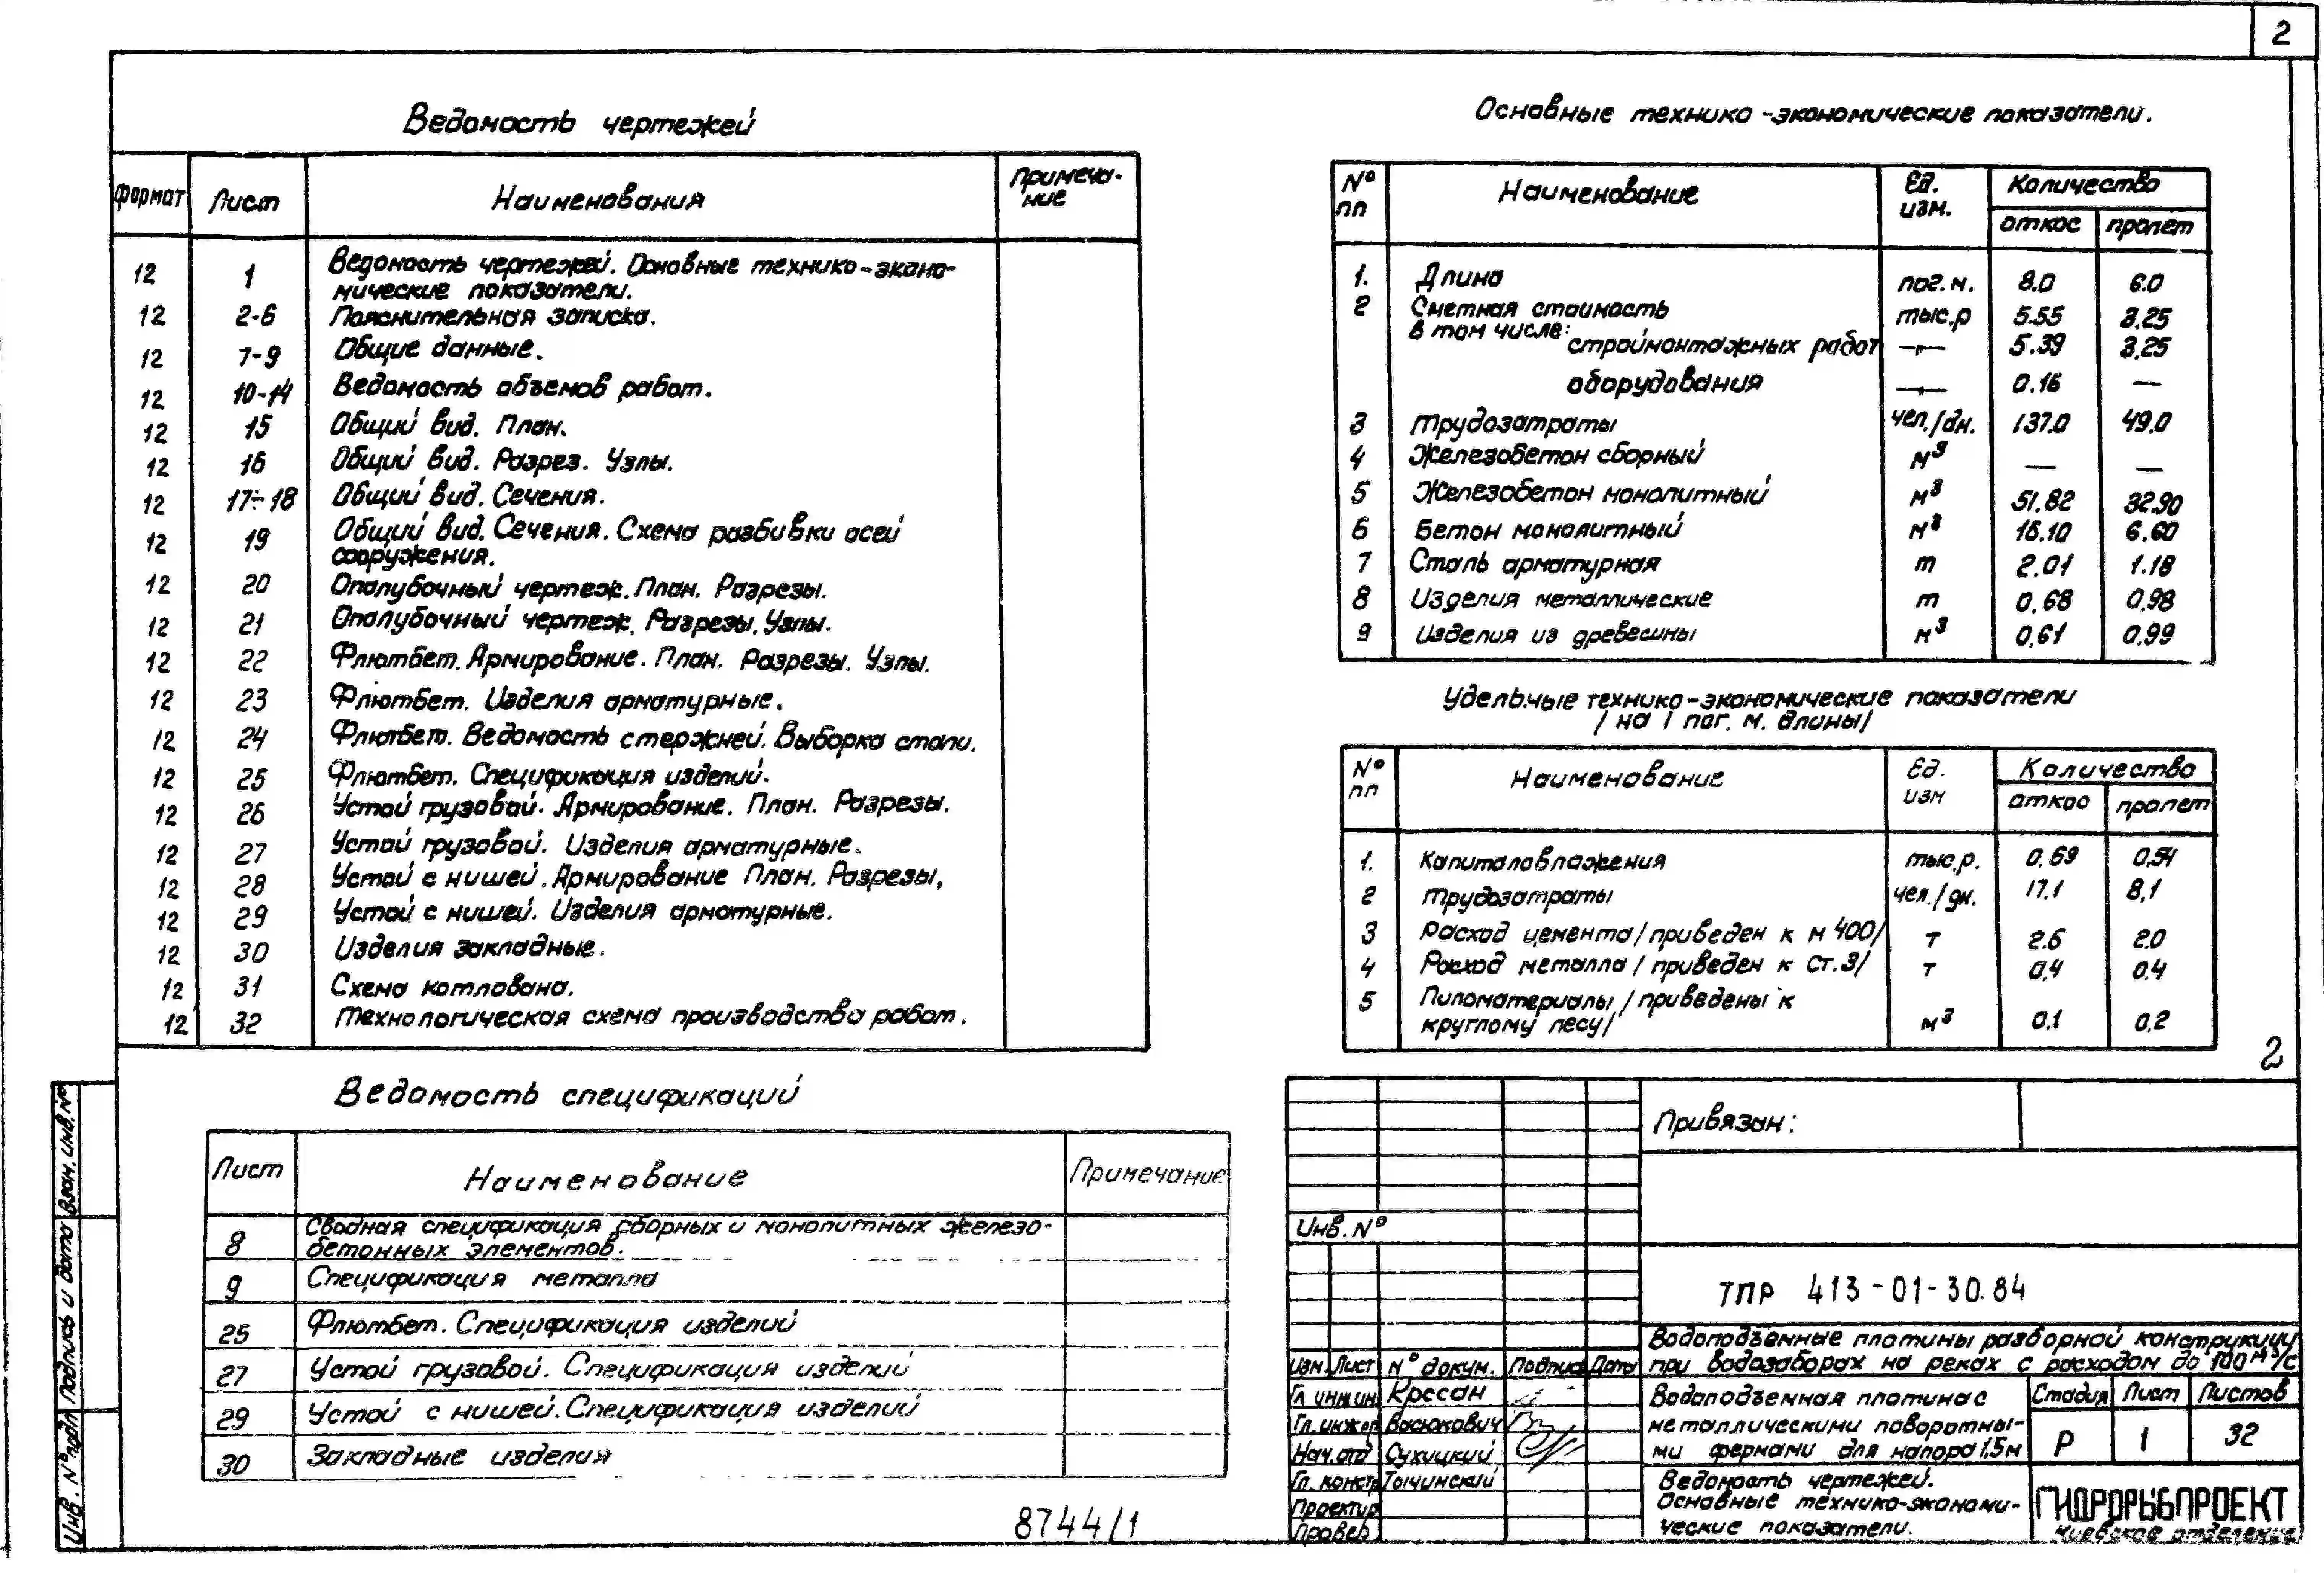 2
Ведомость чертежей
формат Лист Наименования Примеча-
ние
12 1 Ведомость чертежей. Основные технико-эконо-
мические показатели.
12 2-6 Пояснительная записка.
12 7-9 Общие данные.
12 10-14 Ведомость объемов работ.
12 15 Общий вид. План.
12 16 Общий вид. Разрез. Узлы.
12 17÷18 Общий вид. Сечения.
12 19 Общий вид. Сечения. Схема разбивки осей
сооружения.
12 20 Опалубочный чертеж. План. Разрезы.
12 21 Опалубочный чертеж. Разрезы. Узлы.
12 22 Флютбет. Армирование. План. Разрезы. Узлы.
12 23 Флютбет. Изделия арматурные.
12 24 Флютбет. Ведомость стержней. Выборка стали.
12 25 Флютбет. Спецификация изделий.
12 26 Устой грузовой. Армирование. План. Разрезы.
12 27 Устой грузовой. Изделия арматурные.
12 28 Устой с нишей. Армирование План. Разрезы,
12 29 Устой с нишей. Изделия арматурные.
12 30 Изделия закладные.
12 31 Схема котлована.
12 32 Технологическая схема производства работ.
Ведомость спецификаций
Лист Наименование Примечание
8 Сводная спецификация сборных и монолитных железо-
бетонных элементов.
9 Спецификация металла
25 Флютбет. Спецификация изделий
27 Устой грузовой. Спецификация изделий
29 Устой с нишей. Спецификация изделий
30 Закладные изделия
8744/1
Основные технико-экономические показатели.
№ пп Наименование Ед. изм. Количество
откос пролет
1. Длина пог.м. 8.0 6.0
2 Сметная стоимость тыс.р 5.55 3.25
в том числе:
строймонтажных работ —"— 5.39 3.25
оборудования —"— 0.16 —
3 Трудозатраты чел./дн. 137.0 49.0
4 Железобетон сборный м³ — —
5 Железобетон монолитный м³ 51.82 32.90
6 Бетон монолитный м³ 16.10 6.60
7 Сталь арматурная т 2.01 1.18
8 Изделия металлические т 0.68 0.98
9 Изделия из древесины м³ 0,61 0.99
Удельные технико-экономические показатели
/ на 1 пог. м. длины/
№ пп Наименование Ед. изм Количество
откос пролет
1. Капиталовложения тыс.р. 0.69 0.54
2 Трудозатраты чел./дн. 17.1 8.1
3 Расход цемента/приведен к М 400/ т 2.6 2.0
4 Расход металла / приведен к Ст.3/ т 0.4 0.4
5 Пиломатериалы / приведены к
круглому лесу/ м³ 0.1 0.2
2
Привязан:
Инв. №
ТПР 413-01-30.84
Водоподъемные плотины разборной конструкции
при водозаборах на реках с расходом до 100 м³/с
Изм. Лист № докум. Подпись Дата
Гл. инж ин. Кресан
Гл. инж.пр Васюкович
Нач. отд Сухицкий
Гл. констр Тычинский
Проектир
Провер.
Водоподъемная плотина с
металлическими поворотны-
ми фермами для напора 1.5м
Стадия Лист Листов
Р 1 32
Ведомость чертежей.
Основные технико-экономи-
ческие показатели.
ГИДРОРЫБПРОЕКТ
Киевское отделение
Взам. инв. №
Подпись и дата
Инв. № подл